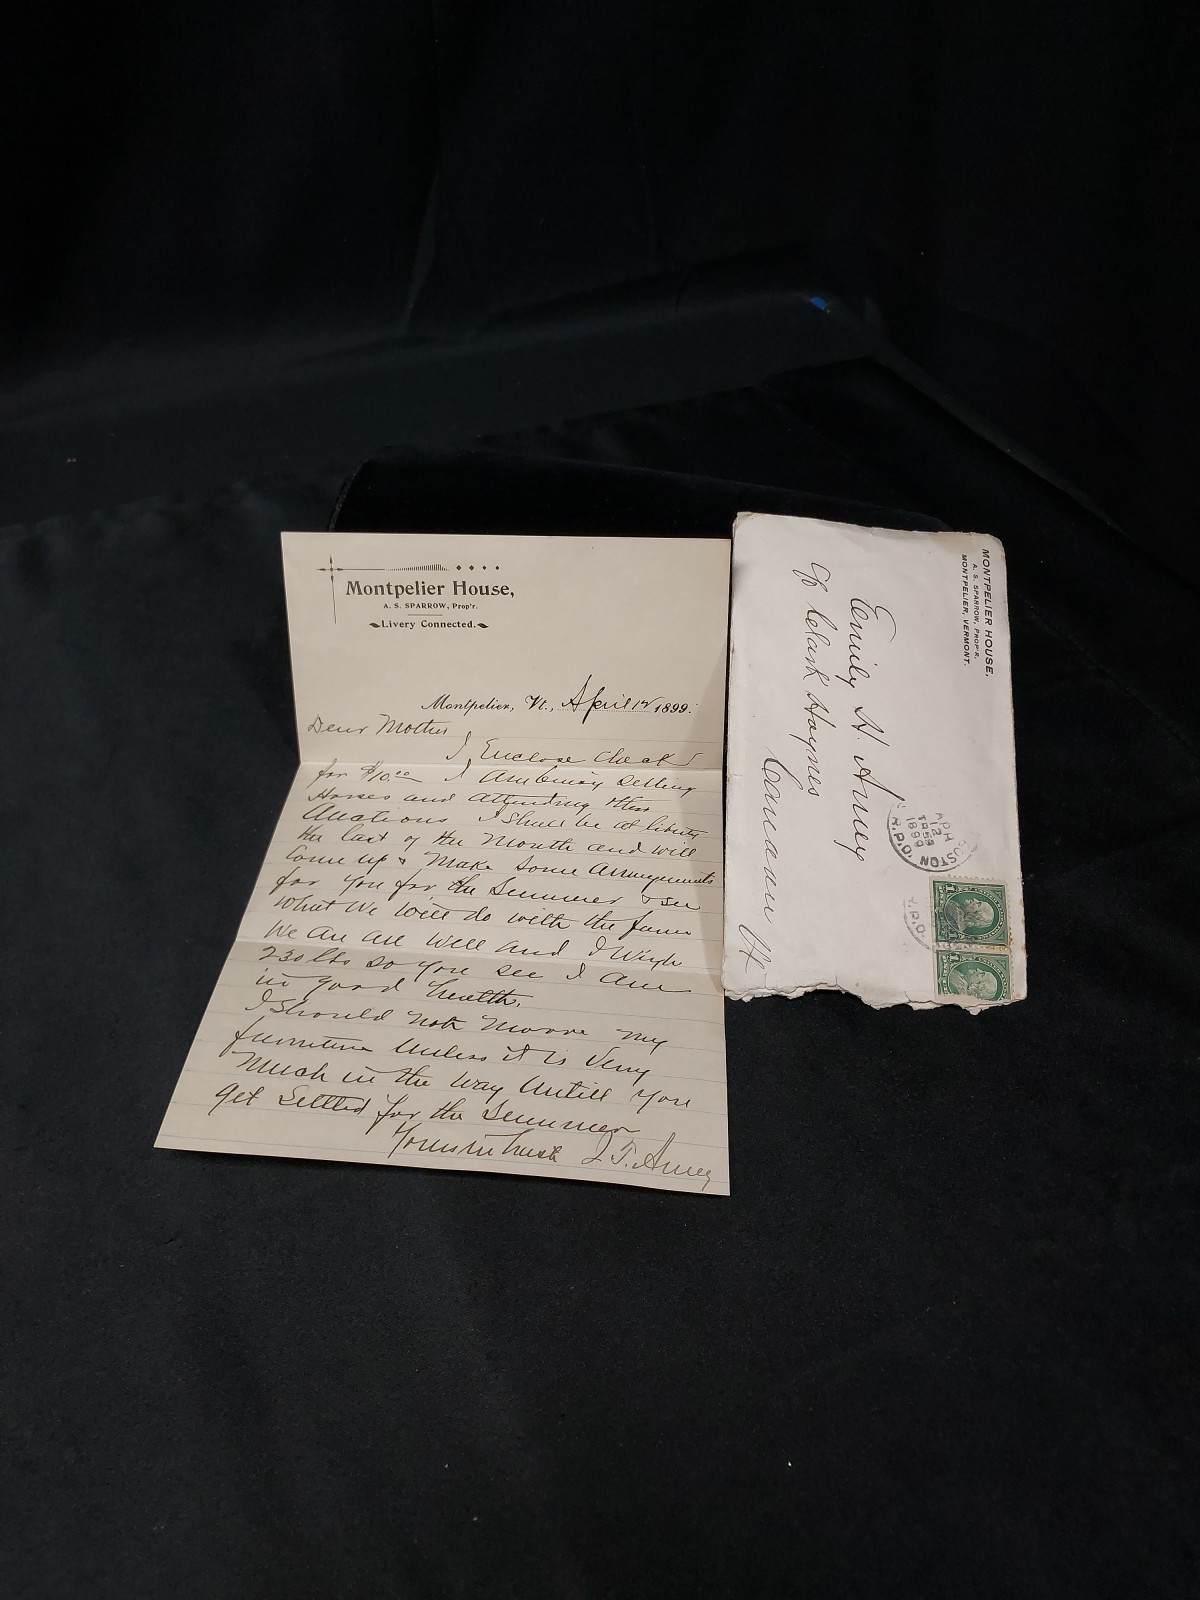 Montpelier House,
A. S. SPARROW, Prop'r.
Livery Connected.
Montpelier, Vt., April 12 1899.
Dear Mother
I Enclose Check
for $10.00 I Am busy Selling
Horses and Attending other
Auctions I Shall be at liberty
the last of the Month and will
Come up & Make Some Arrangements
for you for the Summer & see
What We Will do with the farm
We are all Well and I Weigh
230 lbs so you see I Am
in good health.
I Should not Moove My
furniture Unless it is Very
Much in the way Untill you
get Settled for the Summer
Yours in haste J. T. Amey
MONTPELIER HOUSE.
A. S. SPARROW, PROP'R,
MONTPELIER, VERMONT.
Emily H. Amey
% Clark Haynes
Canaan Vt
APR
12
1899
R.P.O.
R.P.O.
1 1
1